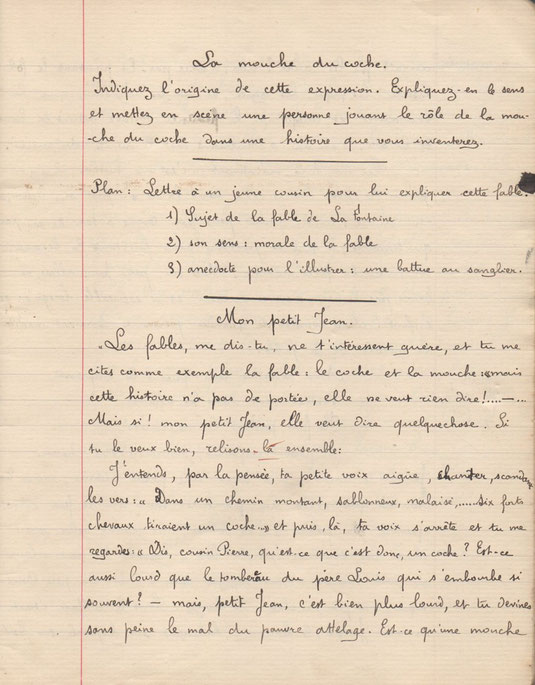 La mouche du coche.
Indiquez l'origine de cette expression. Expliquez-en le sens
et mettez en scène une personne jouant le rôle de la mou-
-che du coche dans une histoire que vous inventerez.
Plan: Lettre à un jeune cousin pour lui expliquer cette fable.
1) Sujet de la fable de La Fontaine
2) son sens: morale de la fable
3) anecdocte pour l'illustrer: une battue au sanglier.
Mon petit Jean.
"Les fables, me dis-tu, ne t'intéressent guère, et tu me
cites comme exemple la fable: le coche et la mouche: «mais
cette histoire n'a pas de portée, elle ne veut rien dire!....—...
Mais si! mon petit Jean, elle veut dire quelquechose. Si
tu le veux bien, relisons-la ensemble:
J'entends, par la pensée, ta petite voix aigüe, chanter, scander
les vers: « Dans un chemin montant, sablonneux, malaisé,.....six forts
chevaux tiraient un coche...» et puis, là, ta voix s'arrête et tu me
regardes: « Dis, cousin Pierre, qu'est-ce que c'est donc, un coche? Est-ce
aussi lourd que le tombereau du père Louis qui s'embourbe si
souvent? — mais, petit Jean, c'est bien plus lourd, et tu devines
sans peine le mal du pauvre attelage. Est-ce qu'une mouche